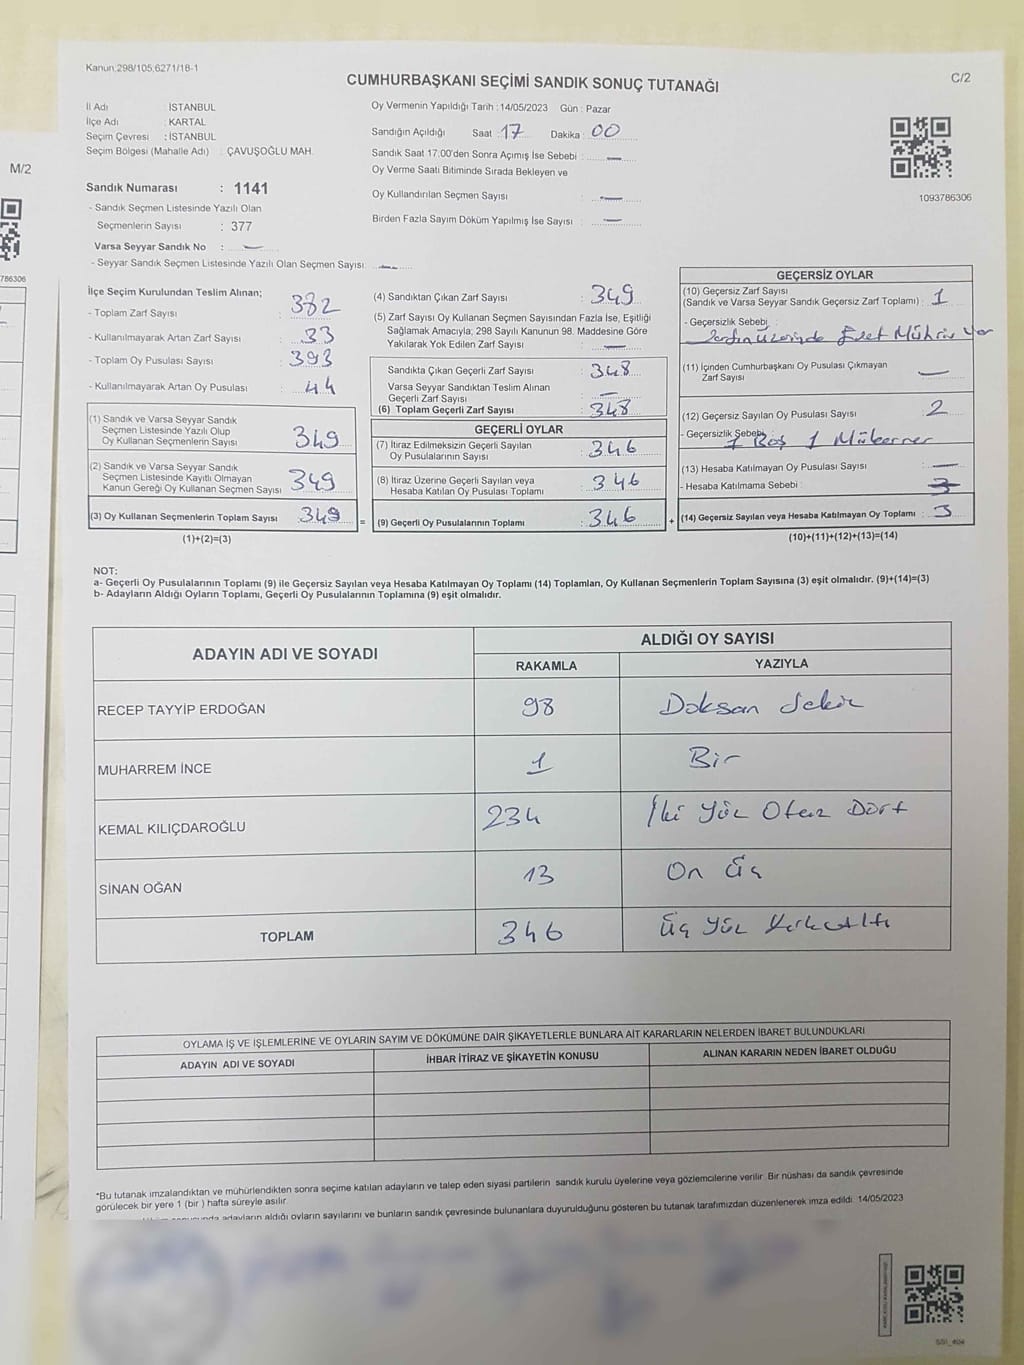 Kanun:298/105;6271/18-1
C/2
CUMHURBAŞKANI SEÇİMİ SANDIK SONUÇ TUTANAĞI
İl Adı : İSTANBUL
İlçe Adı : KARTAL
Seçim Çevresi : İSTANBUL
Seçim Bölgesi (Mahalle Adı) : ÇAVUŞOĞLU MAH.
Sandık Numarası : 1141
- Sandık Seçmen Listesinde Yazılı Olan
Seçmenlerin Sayısı : 377
Varsa Seyyar Sandık No : —
- Seyyar Sandık Seçmen Listesinde Yazılı Olan Seçmen Sayısı: —
Oy Vermenin Yapıldığı Tarih : 14/05/2023 Gün : Pazar
Sandığın Açıldığı Saat : 17 Dakika : 00
Sandık Saat 17:00'den Sonra Açımış İse Sebebi : —
Oy Verme Saati Bitiminde Sırada Bekleyen ve
Oy Kullandırılan Seçmen Sayısı : —
Birden Fazla Sayım Döküm Yapılmış İse Sayısı : —
1093786306
M/2
786306
İlçe Seçim Kurulundan Teslim Alınan;
- Toplam Zarf Sayısı : 382
- Kullanılmayarak Artan Zarf Sayısı : 33
- Toplam Oy Pusulası Sayısı : 393
- Kullanılmayarak Artan Oy Pusulası : 44
(1) Sandık ve Varsa Seyyar Sandık
Seçmen Listesinde Yazılı Olup
Oy Kullanan Seçmenlerin Sayısı 349
(2) Sandık ve Varsa Seyyar Sandık
Seçmen Listesinde Kayıtlı Olmayan
Kanun Gereği Oy Kullanan Seçmen Sayısı 349
(3) Oy Kullanan Seçmenlerin Toplam Sayısı 349 =
(1)+(2)=(3)
(4) Sandıktan Çıkan Zarf Sayısı : 349
(5) Zarf Sayısı Oy Kullanan Seçmen Sayısından Fazla İse, Eşitliği
Sağlamak Amacıyla; 298 Sayılı Kanunun 98. Maddesine Göre
Yakılarak Yok Edilen Zarf Sayısı : —
Sandıkta Çıkan Geçerli Zarf Sayısı : 348
Varsa Seyyar Sandıktan Teslim Alınan
Geçerli Zarf Sayısı : —
(6) Toplam Geçerli Zarf Sayısı : 348
GEÇERLİ OYLAR
(7) İtiraz Edilmeksizin Geçerli Sayılan
Oy Pusulalarının Sayısı : 346
(8) İtiraz Üzerine Geçerli Sayılan veya
Hesaba Katılan Oy Pusulası Toplamı : 346
(9) Geçerli Oy Pusulalarının Toplamı : 346 +
GEÇERSİZ OYLAR
(10) Geçersiz Zarf Sayısı
(Sandık ve Varsa Seyyar Sandık Geçersiz Zarf Toplamı) : 1
- Geçersizlik Sebebi :
Zarfın Üzerinde Evet Mührü Var
(11) İçinden Cumhurbaşkanı Oy Pusulası Çıkmayan
Zarf Sayısı : —
(12) Geçersiz Sayılan Oy Pusulası Sayısı : 2
- Geçersizlik Sebebi : 1 Boş 1 Mükerrer
(13) Hesaba Katılmayan Oy Pusulası Sayısı : —
- Hesaba Katılmama Sebebi : 3
(14) Geçersiz Sayılan veya Hesaba Katılmayan Oy Toplamı : 3
(10)+(11)+(12)+(13)=(14)
NOT:
a- Geçerli Oy Pusulalarının Toplamı (9) ile Geçersiz Sayılan veya Hesaba Katılmayan Oy Toplamı (14) Toplamları, Oy Kullanan Seçmenlerin Toplam Sayısına (3) eşit olmalıdır. (9)+(14)=(3)
b- Adayların Aldığı Oyların Toplamı, Geçerli Oy Pusulalarının Toplamına (9) eşit olmalıdır.
ADAYIN ADI VE SOYADI
ALDIĞI OY SAYISI
RAKAMLA YAZIYLA
RECEP TAYYİP ERDOĞAN 98 Doksan Sekiz
MUHARREM İNCE 1 Bir
KEMAL KILIÇDAROĞLU 234 İki Yüz Otuz Dört
SİNAN OĞAN 13 On Üç
TOPLAM 346 Üç Yüz Kırk Altı
OYLAMA İŞ VE İŞLEMLERİNE VE OYLARIN SAYIM VE DÖKÜMÜNE DAİR ŞİKAYETLERLE BUNLARA AİT KARARLARIN NELERDEN İBARET BULUNDUKLARI
ADAYIN ADI VE SOYADI İHBAR İTİRAZ VE ŞİKAYETİN KONUSU ALINAN KARARIN NEDEN İBARET OLDUĞU
*Bu tutanak imzalandıktan ve mühürlendikten sonra seçime katılan adayların ve talep eden siyasi partilerin sandık kurulu üyelerine veya gözlemcilerine verilir. Bir nüshası da sandık çevresinde
görülecek bir yere 1 (bir ) hafta süreyle asılır.
adayların aldığı oyların sayılarını ve bunların sandık çevresinde bulunanlara duyurulduğunu gösteren bu tutanak tarafımızdan düzenlenerek imza edildi. 14/05/2023